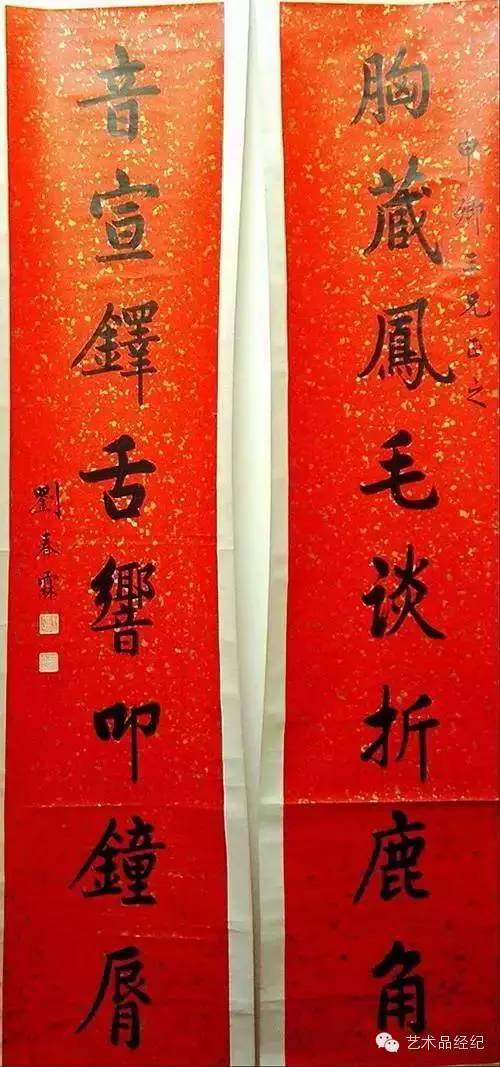 申卿三兄正之
胸藏鳳毛谈折鹿角
音宣鐸舌響叩鐘脣
劉春霖
艺术品经纪